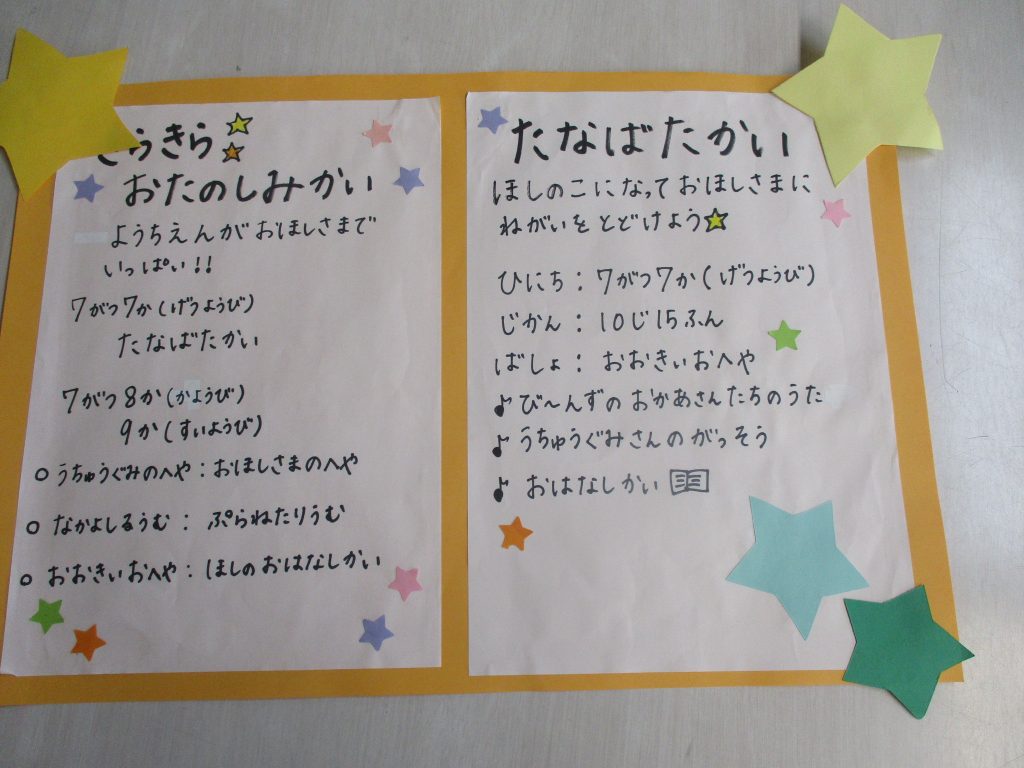 きらきら
おたのしみかい
ようちえんがおほしさまで
いっぱい!!
7がつ7か(げつようび)
たなばたかい
7がつ8か(かようび)
9か(すいようび)
○うちゅうぐみのへや:おほしさまのへや
○なかよしるうむ:ぷらねたりうむ
○おおきいおへや:ほしのおはなしかい
たなばたかい
ほしのこになっておほしさまに
ねがいをとどけよう
ひにち:7がつ7か(げつようび)
じかん:10じ15ふん
ばしょ:おおきいおへや
♪び〜んずのおかあさんたちのうた
♪うちゅうぐみさんのがっそう
♪おはなしかい